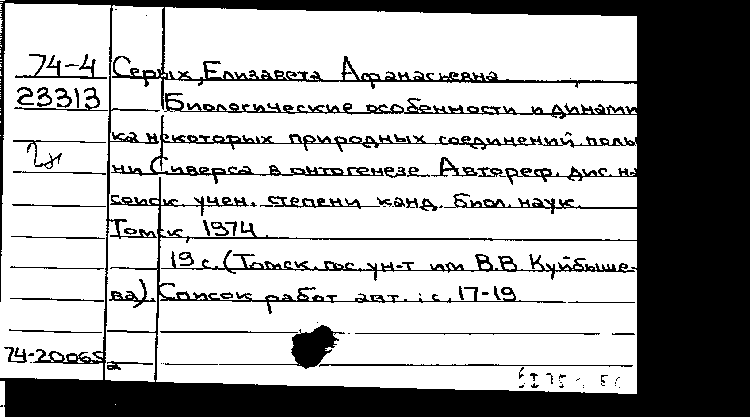 74-4 Серых, Елизавета Афанасьевна
23313 Биологические особенности и динами
ка некоторых природных соединений полы
2х
ни Сиверса в онтогенезе Автореф. дис. на
соиск. учен. степени канд. биол. наук.
Томск, 1974.
19 с. (Томск. гос. ун-т им В.В. Куйбыше-
ва). Список работ авт.: с. 17-19
74-20065а